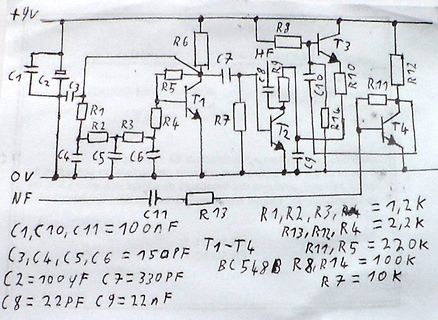 +9V
R6
R8
T3
HF
C7
R5
C8
R9
C10
R10
R12
C1
C2
C3
R11
R1
T1
R4
R7
R14
R2
R3
T2
T4
C4
C5
C6
C9
0V
NF
C11
R13
R1, R2, R3, = 1,2K
C1, C10, C11 = 100nF
R13, R12, R4 = 2,2K
C3, C4, C5, C6 = 150PF
T1-T4
R11, R5 = 220K
C2 = 100µF C7 = 330PF
BC548B R8, R14 = 100K
C8 = 22PF C9 = 22nF
R7 = 10K